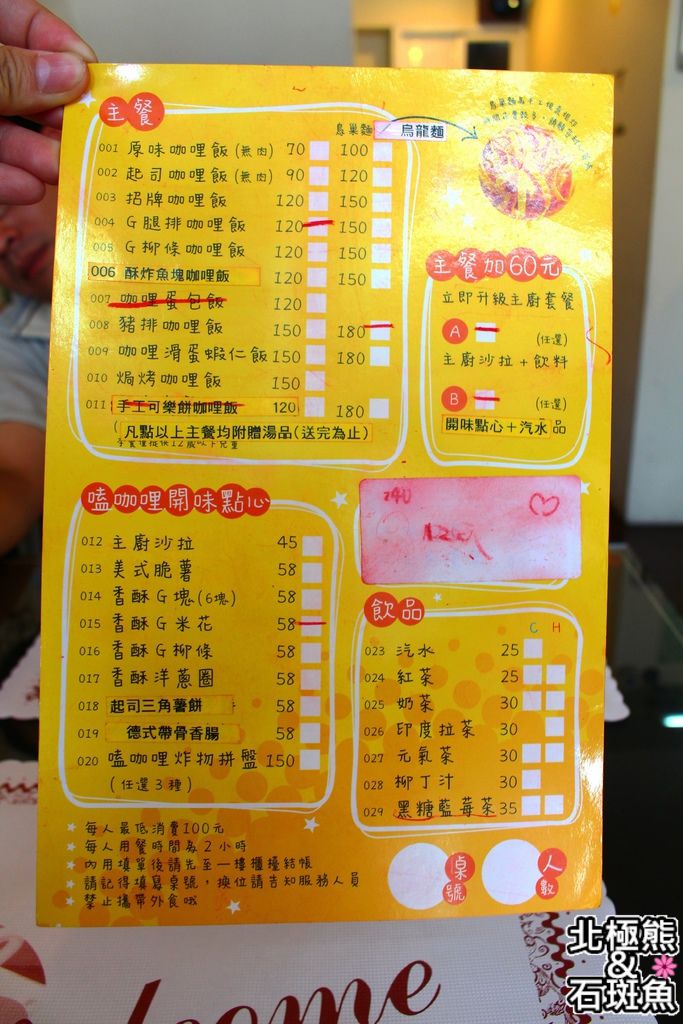 主餐
鳥巢麵 / 烏龍麵
001 原味咖哩飯(無肉) 70 100
002 起司咖哩飯(無肉) 90 120
003 招牌咖哩飯 120 150
004 G腿排咖哩飯 120 150
005 G柳條咖哩飯 120 150
006 酥炸魚塊咖哩飯 120 150
007 咖哩蛋包飯 120
008 豬排咖哩飯 150 180
009 咖哩滑蛋蝦仁飯 150 180
010 焗烤咖哩飯 150
011 手工可樂餅咖哩飯 120 180
(凡點以上主餐均附贈湯品(送完為止)
主餐加60元
立即升級主廚套餐
A (任選)
主廚沙拉+飲料
B (任選)
開味點心+汽水品
嗑咖哩開味點心
012 主廚沙拉 45
013 美式脆薯 58
014 香酥G塊(6塊) 58
015 香酥G米花 58
016 香酥G柳條 58
017 香酥洋蔥圈 58
018 起司三角薯餅 58
019 德式帶骨香腸 58
020 嗑咖哩炸物拼盤 150
(任選3種)
240
飲品
C H
023 汽水 25
024 紅茶 25
025 奶茶 30
026 印度拉茶 30
027 元氣茶 30
028 柳丁汁 30
029 黑糖藍莓茶 35
每人最低消費100元
每人用餐時間為2小時
內用填單後請先至一樓櫃檯結帳
請記得填寫桌號,換位請告知服務人員
禁止攜帶外食哦
桌號
人數
come
北極熊
&
石斑魚